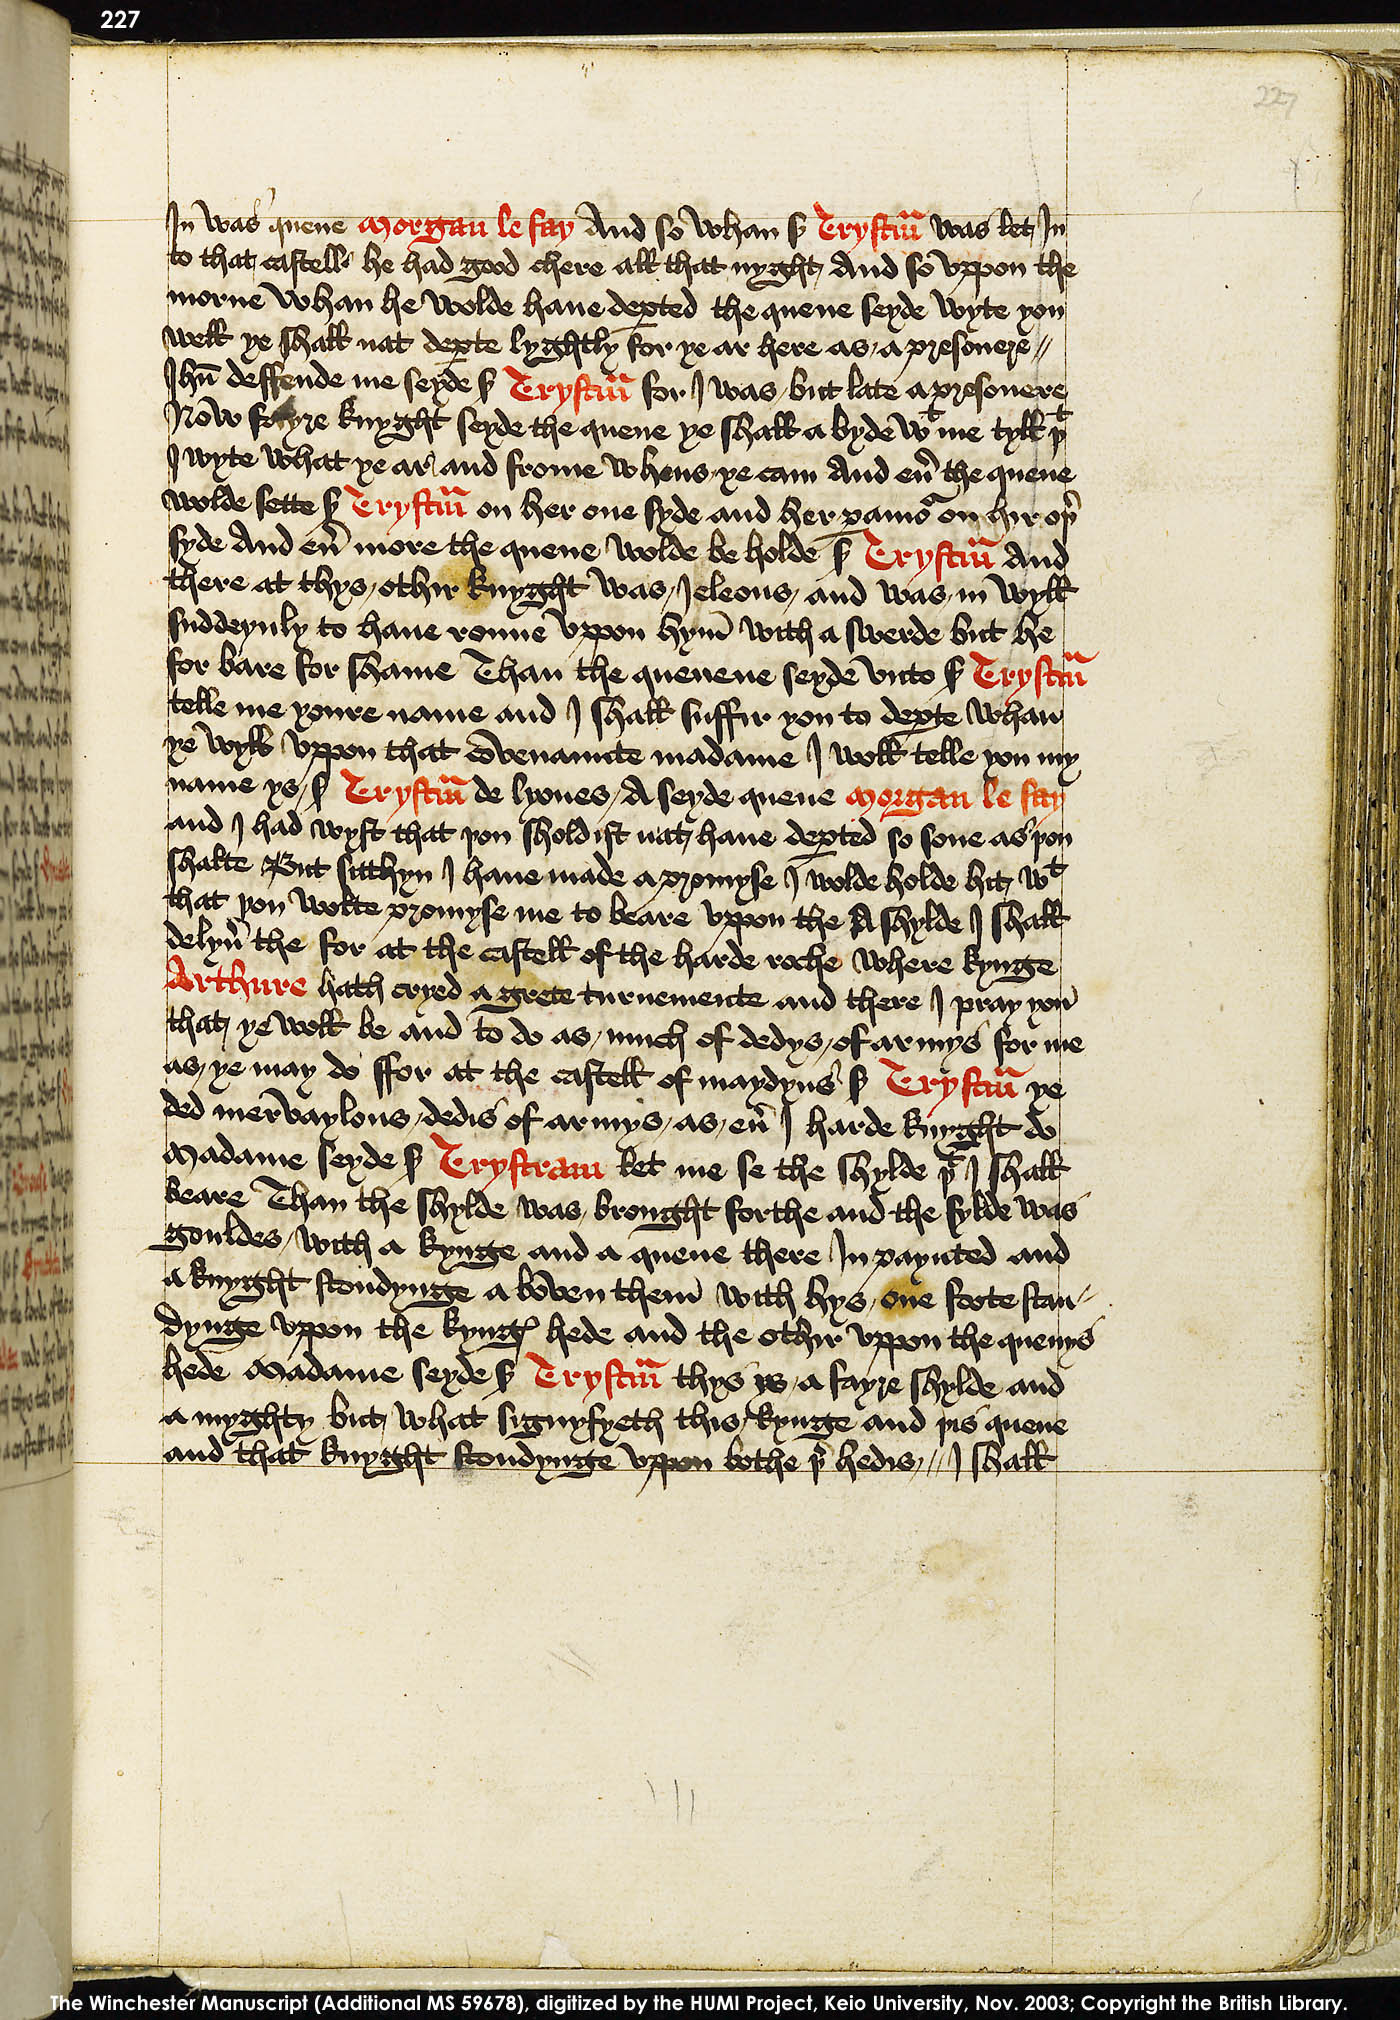 227
227
In was quene Morgan le fay And so whan sʳ Trystrm̄ was let In
to that castell he had good chere all that nyght And so vppon the
morne whan he wolde haue depted the quene seyde wyte you
well ye shall nat depte lyghtly for ye ar here as a presonere //
Ihū deffende me seyde sʳ Trystrm̄ for I was but late a presonere
Now fayre knyght seyde the quene ye shall a byde wᵗ me tyll þᵗ
I wyte what ye ar and frome whens ye cam And eủ the quene
wolde sette sʳ Trystrm̄ on her one syde and her pamoʳ on hir oþ̉
syde And eủ more the quene wolde be holde sʳ Trystrm̄ And
there at thys othir knyght was Ieleous and was in wyll
suddeynly to haue ronne vppon hym̄ with a swerde but he
for bare for shame Than the quenene seyde vnto sʳ Trystrm̄
telle me youre name and I shall suffir you to depte whan
ye wyll vppon that covenaunte madame I woll telle you my
name ys sʳ Trystrm̄ de lyones A seyde quene Morgan le fay
and I had wyst that þou sholdist nat haue depted so sone as þou
shalte But sitthyn I haue made a promyse I wolde holde hit wᵗ
that þou wolte promyse me to beare vppon the A shylde I shall
delyủ the for at the castell of the harde roche where kynge
Arthure hath cryed a grete turnemente and there I pray you
that ye woll be and to do as much of dedys of armys for me
as ye may do ffor at the castell of maydyns sʳ Trystrm̄ ye
ded mervaylous dedis of armys as eủ I harde knyght do
Madame seyde sʳ Trystram let me se the shylde þᵗ I shall
beare Than the shylde was brought forthe and the fylde was
gouldes with a kynge and a quene there In paynted and
a knyght stondynge a boven them̄ with hys one foote stan-
dynge vppon the kyngꝭ hede and the othir vppon the quenys
hede Madame seyde sʳ Trystrm̄ thys ys a fayre shylde and
a myghty but what signyfyeth this kynge and þis quene
and that knyght stondynge vppon bothe þ̉ hedis // I shall
The Winchester Manuscript (Additional MS 59678), digitized by the HUMI Project, Keio University, Nov. 2003; Copyright the British Library.